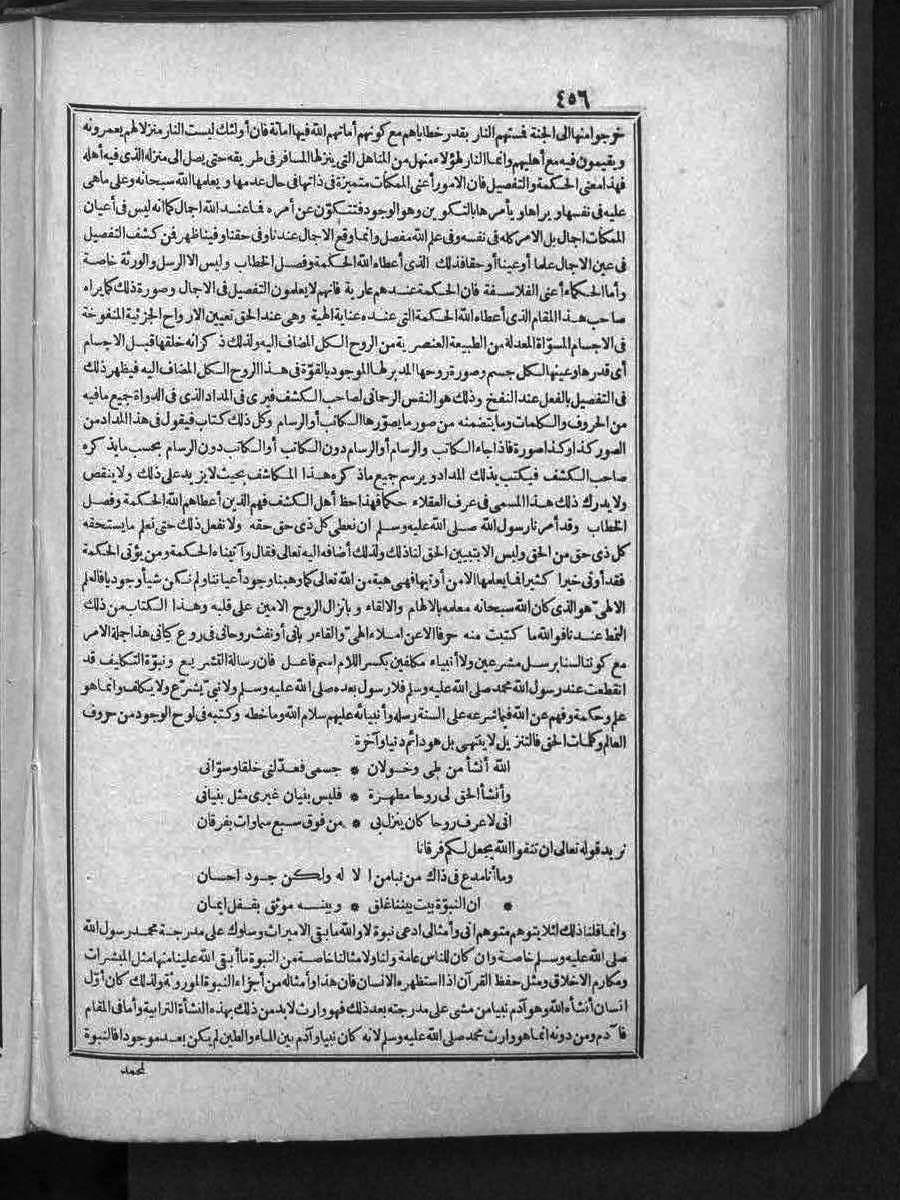 ٤٥٦
خرجوا منها الى الجنة فستهم النار بقدر خطاياهم مع كونهم أماتهم الله فيها اماتة فان أولئك ليست النار منزلا لهم يعمرونه
ويقيمون فيه مع أهليهم وانما النار لهؤلاء منهل من المناهل التى ينزلها المسافر فى طريقه حتى يصل الى منزله الذى فيه أهله
فهذا معنى الحكمة والتفصيل فان الامور أعنى الممكنات متميزة فى ذاتها فى حال عدمها ويعلمها الله سبحانه وعلى ماهى
عليه فى نفسها ويراها ويأمرها بالتكوين وهو الوجود فتتكوّن عن أمره فما عند الله اجمال كما انه ليس فى أعيان
الممكنات اجمال بل الامر كله فى نفسه وفى علم الله مفصل وانما وقع الاجمال عندنا وفى حقنا وفينا ظهر فن كشف التفصيل
فى عين الاجمال علما أو عينا أو حقا فذلك الذى أعطاه الله الحكمة وفصل الخطاب وليس الا الرسل والورثة خاصة
وأما الحكماء أعنى الفلاسفة فان الحكمة عندهم عارية فانهم لا يعلمون التفصيل فى الاجمال وصورة ذلك كما يراه
صاحب هذا المقام الذى أعطاه الله الحكمة التى عنده عناية الهية وهى عند الحق تعيين الارواح الجزئية المنفوخة
فى الاجسام المسوّاة المعدلة من الطبيعة العنصرية من الروح الكل المضاف اليه ولذلك ذكر انه خلقها قبل الاجسام
أى قدرها وعينها لكل جسم وصورة روحها المدبر لها الموجود بالقوّة فى هذا الروح الكل المضاف اليه فيظهر ذلك
فى التفصيل بالفعل عند النفخ وذلك هو النفس الرحمانى لصاحب الكشف فيرى فى المداد الذى فى الدواة جميع مافيه
من الحروف والكلمات وما يتضمنه من صور مايصوّرها الكاتب أو الرسام وكل ذلك كتاب فيقول فى هذا المداد من
الصور كذا وكذا صورة فاذا جاء الكاتب والرسام أو الرسام دون الكاتب أو الكاتب دون الرسام بحسب مايذكره
صاحب الكشف فيكتب بذلك المداد ويرسم جميع ماذكره هذا المكاشف بحيث لا يزيد على ذلك ولا ينقص
ولا يدرك ذلك هذا المسمى فى عرف العقلاء حكما فهذا حظ أهل الكشف فهم الذين أعطاهم الله الحكمة وفصل
الخطاب وقد أمرنا رسول الله صلى الله عليه وسلم ان نعطى كل ذى حق حقه ولا نفعل ذلك حتى نعلم مايستحقه
كل ذى حق من الحق وليس الا بتبيين الحق لنا ذلك ولذلك أضافه اليه تعالى فقال وآتيناه الحكمة ومن يؤتى الحكمة
فقد أوتى خيرا كثيرا فما يعلمها الا من أوتيها فهى هبة من الله تعالى كما وهبنا وجود أعياننا ولم نكن شيأ وجوديا فالعلم
الالهىّ هو الذى كان الله سبحانه معلمه بالالهام والالقاء وبانزال الروح الامين على قلبه وهذا الكتاب من ذلك
النمط عندنا فوالله ما كتبت منه حرفا الا عن املاء الهىّ والقاء ربانى أو نفث روحانى فى روع كيانى هذا جملة الامر
مع كوننا لسنا برسل مشرعين ولا أنبياء مكلفين بكسر اللام اسم فاعل فان رسالة التشريع ونبوّة التكليف قد
انقطعت عند رسول الله محمد صلى الله عليه وسلم فلا رسول بعده صلى الله عليه وسلم ولا نبىّ يشرّع ولا يكلف وانما هو
علم وحكمة وفهم عن الله فيما شرعه على السنة رسله وأنبيائه عليهم سلام الله وما خطه وكتبه فى لوح الوجود من حروف
العالم وكلمات الحق فالتنزيل لا ينتهى بل هو دائم دنيا وآخرة
الله أنشأ من طى وخولان * جسمى فعدّلنى خلقا وسوّانى
وأنشأ الحق لى روحا مطهرة * فليس بنيان غيرى مثل بنيانى
انى لاعرف روحا كان ينزل بى * من فوق سبع سماوات بفرقان
نريد قوله تعالى ان تتقوا الله يجعل لكم فرقانا
وما أنا مدع فى ذاك من نبا من الا له ولكن جود احسان
* ان النبوّة بيت بيننا غلق * وبينه موثق بقفل ايمان
وانما قلنا ذلك لئلا يتوهم متوهم انى وأمثالى ادعى نبوة لا والله مابقى الا ميراث وسلوك على مدرجة محمد رسول الله
صلى الله عليه وسلم خاصة وان كان للناس عامة ولنا ولامثالنا خاصة من النبوة ما أبقى الله علينا منها مثل المبشرات
ومكارم الاخلاق ومثل حفظ القرآن اذا استظهره الانسان فان هذا وأمثاله من أجزاء النبوة الموروثة ولذلك كان أوّل
انسان أنشأه الله وهو آدم نبيا من مشى على مدرجته بعد ذلك فهو وارث لا بد من ذلك بهذه النشأة الترابية وأما فى المقام
فآدم ومن دونه انما هو وارث محمد صلى الله عليه وسلم لانه كان نبيا وآدم بين الماء والطين لم يكن بعد موجودا فالنبوة
لمحمد